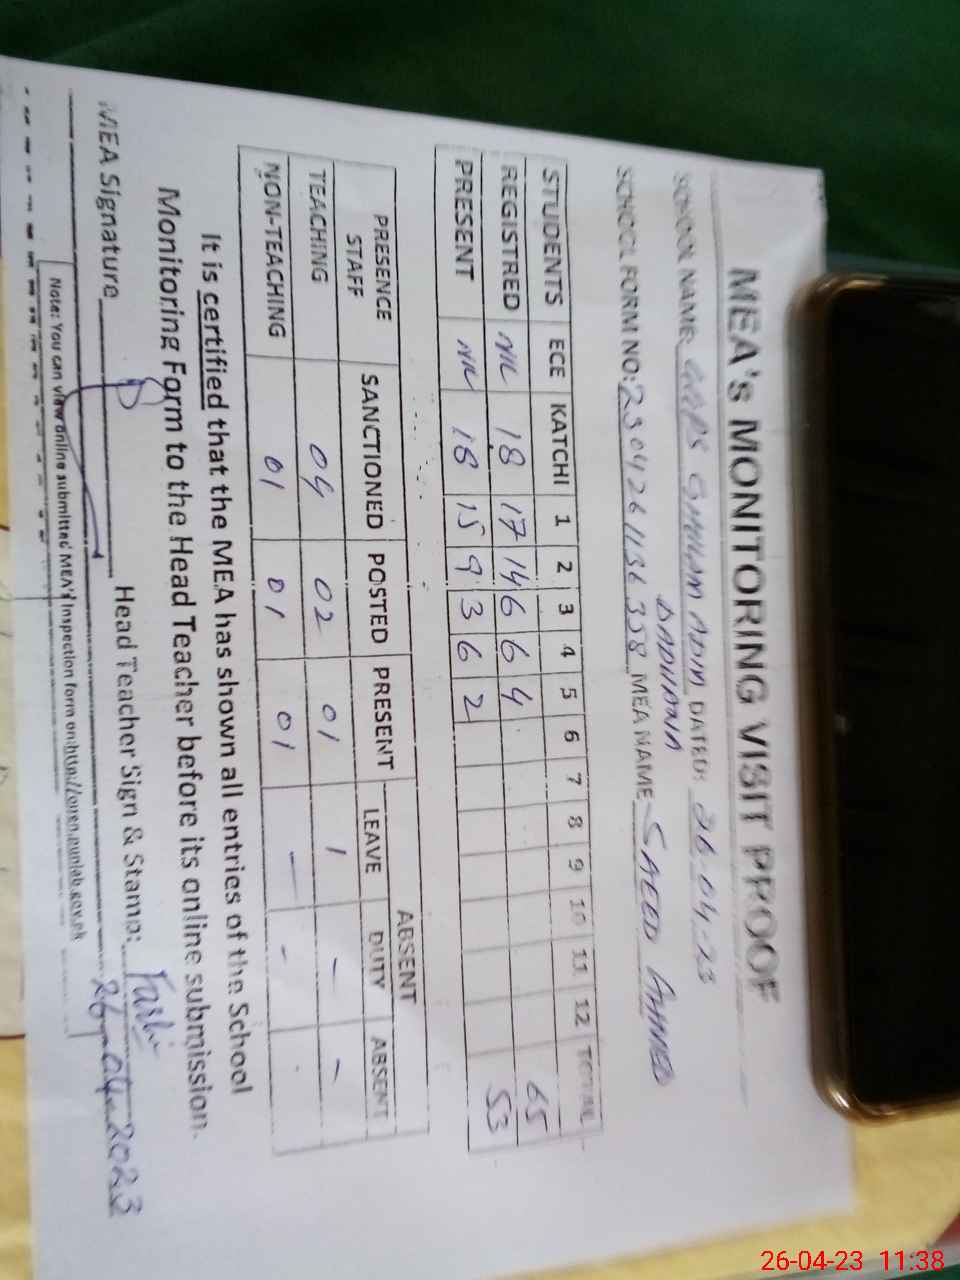 MEA's MONITORING VISIT PROOF
SCHOOL NAME: GGPS GHULAM ADIM DATED: 26.04.23
DADUANA
SCHOOL FORM NO: 230426113638 MEA NAME SAEED AHMED
STUDENTS ECE KATCHI 1 2 3 4 5 6 7 8 9 10 11 12 TOTAL
REGISTRED NIL 18 17 14 6 6 4 65
PRESENT NIL 18 15 9 3 6 2 53
ABSENT
PRESENCE STAFF SANCTIONED POSTED PRESENT LEAVE DUTY ABSENT
TEACHING 04 02 01 1 - -
NON-TEACHING 01 01 01 - -
It is certified that the MEA has shown all entries of the School
Monitoring Form to the Head Teacher before its online submission.
MEA Signature Head Teacher Sign & Stamp:
26-04-2023
Note: You can view online submitted MEA's Inspection form on:http://open.punjab.gov.pk
26-04-23 11:38